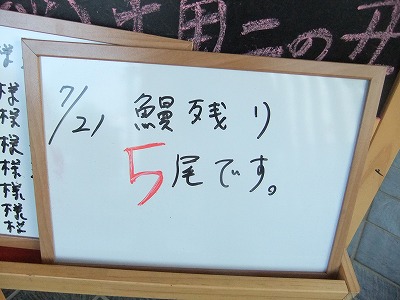 土用二の丑
7/21 鰻残り
5尾です。
様
様
様
様
様
様
様